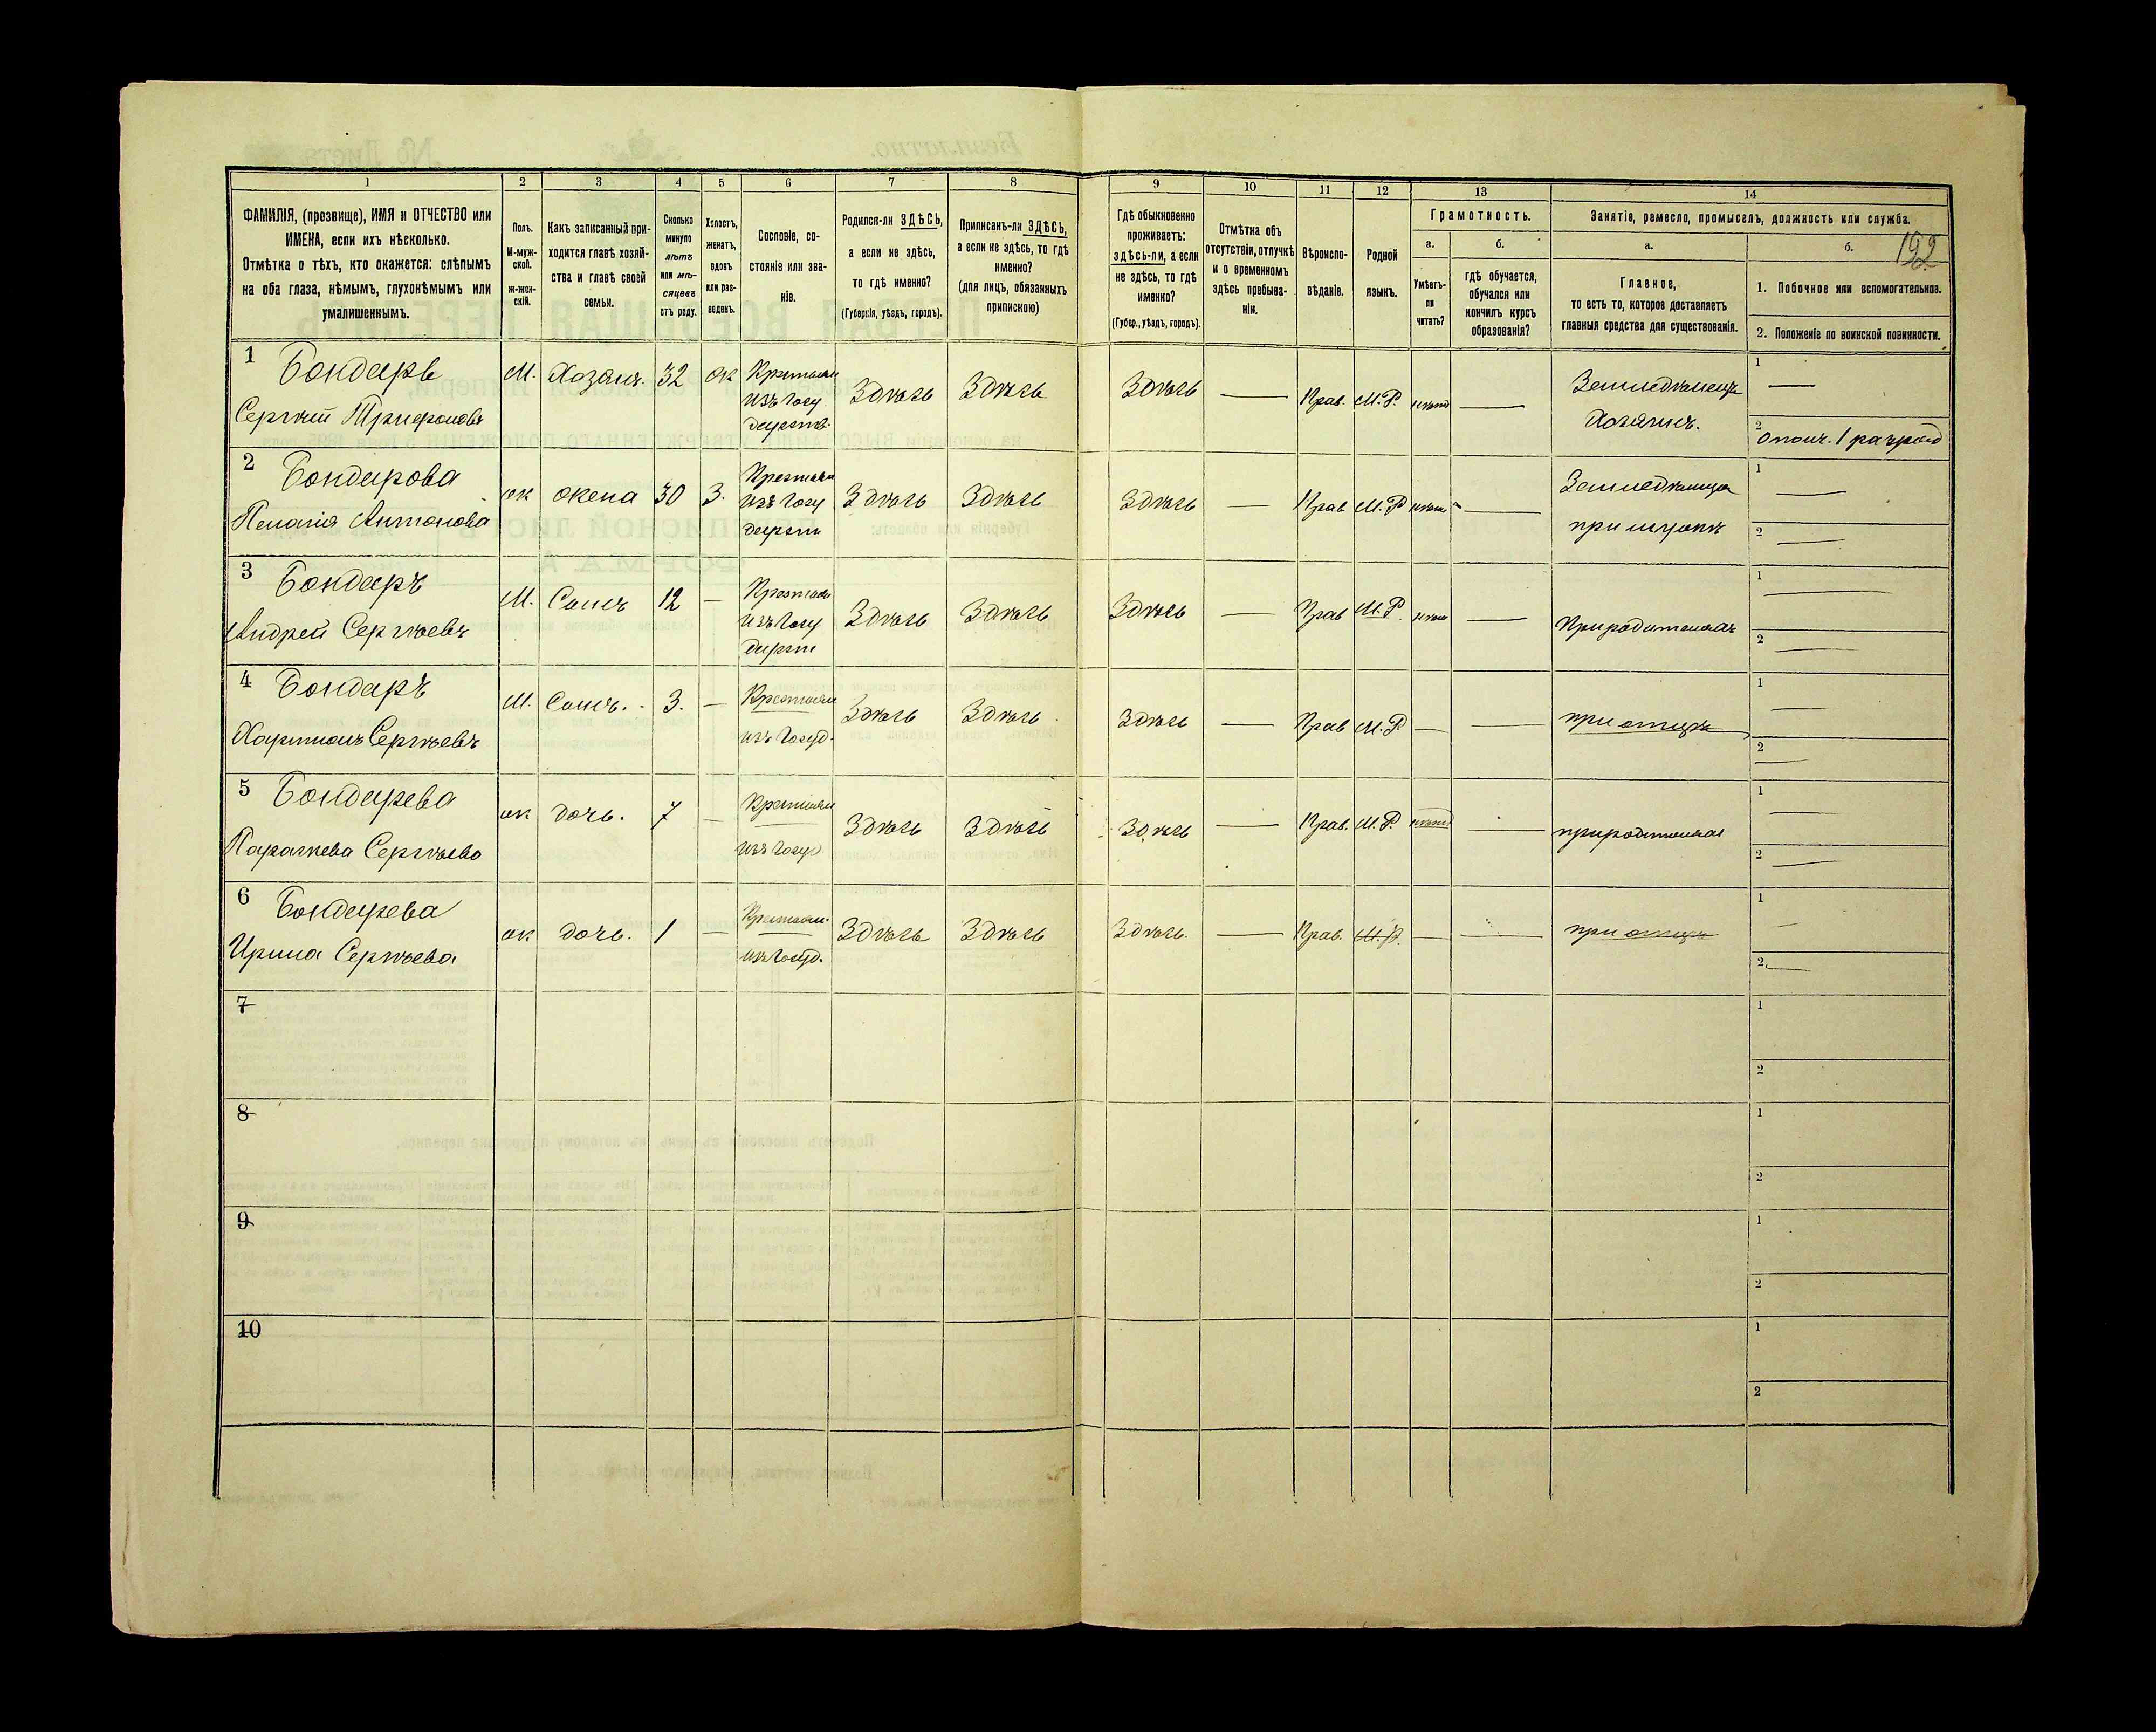 1 2 3 4 5 6 7 8 9 10 11 12 13 14
ФАМИЛІЯ, (прозвище), ИМЯ и ОТЧЕСТВО или
ИМЕНА, если ихъ нѣсколько.
Отмѣтка о тѣхъ, кто окажется: слѣпымъ
на оба глаза, нѣмымъ, глухонѣмымъ или
умалишеннымъ.
Полъ.
М-муж-
ской.
ж-жен-
скій.
Какъ записанный при-
ходится главѣ хозяй-
ства и главѣ своей
семьи.
Сколько
минуло
лѣтъ
или мѣ-
сяцевъ
отъ роду.
Холостъ,
женатъ,
вдовъ
или раз-
веденъ.
Сословіе, со-
стояніе или зва-
ніе.
Родился-ли ЗДѢСЬ,
а если не здѣсь,
то гдѣ именно?
(Губернія, уѣздъ, городъ).
Приписанъ-ли ЗДѢСЬ,
а если не здѣсь, то гдѣ
именно?
(для лицъ, обязанныхъ
припискою)
Гдѣ обыкновенно
проживаетъ:
здѣсь-ли, а если
не здѣсь, то гдѣ
именно?
(Губер., уѣздъ, городъ).
Отмѣтка объ
отсутствіи, отлучкѣ
и о временномъ
здѣсь пребыва-
ніи.
Вѣроиспо-
вѣданіе.
Родной
языкъ.
Грамотность.
а.
Умѣетъ-
ли
читать?
б.
гдѣ обучается,
обучался или
кончилъ курсъ
образованія?
Занятіе, ремесло, промыселъ, должность или служба.
а.
Главное,
то есть то, которое доставляетъ
главныя средства для существованія.
б.
192
1. Побочное или вспомогательное.
2. Положеніе по воинской повинности.
1 Бондарь М. Хозяин. 32 ж Крестьян Здѣсь Здѣсь Здѣсь — Прав. М.Р. нѣтъ — Земледѣлецъ 1 —
Сергѣй Трифоновъ изъ госу Хозяинъ. 2 ополч. 1 разряд
дарств.
2 Бондарова ж жена 30 З. Крестьян Здѣсь Здѣсь Здѣсь — Прав М.Р нѣтъ — Земледѣлица 1 —
Пелагія Антонова изъ госу при мужѣ 2 —
дарств
3 Бондаръ М. Сынъ 12 — Крестьян Здѣсь Здѣсь Здѣсь — Прав М.Р. нѣтъ — При родителяхъ 1 —
Андрей Сергѣевъ изъ госу 2 —
дарст
4 Бондаръ М. Сынъ. 3. — Крестьян Здѣсь Здѣсь Здѣсь — Прав М.Р. — — при отцѣ 1 —
Харитонъ Сергѣевъ изъ госуд. 2 —
5 Бондарева ж дочь. 7 — Крестьян Здѣсь Здѣсь Здѣсь — Прав. М.Р. нѣтъ — при родителях 1 —
Параскева Сергѣева изъ госуд 2 —
6 Бондарева ж дочь. 1 — Крестьян. Здѣсь Здѣсь Здѣсь. — Прав. М.Р. — — при отцѣ 1 —
Ирина Сергѣева изъ госуд. 2 —
7 1
2
8 1
2
9 1
2
10 1
2